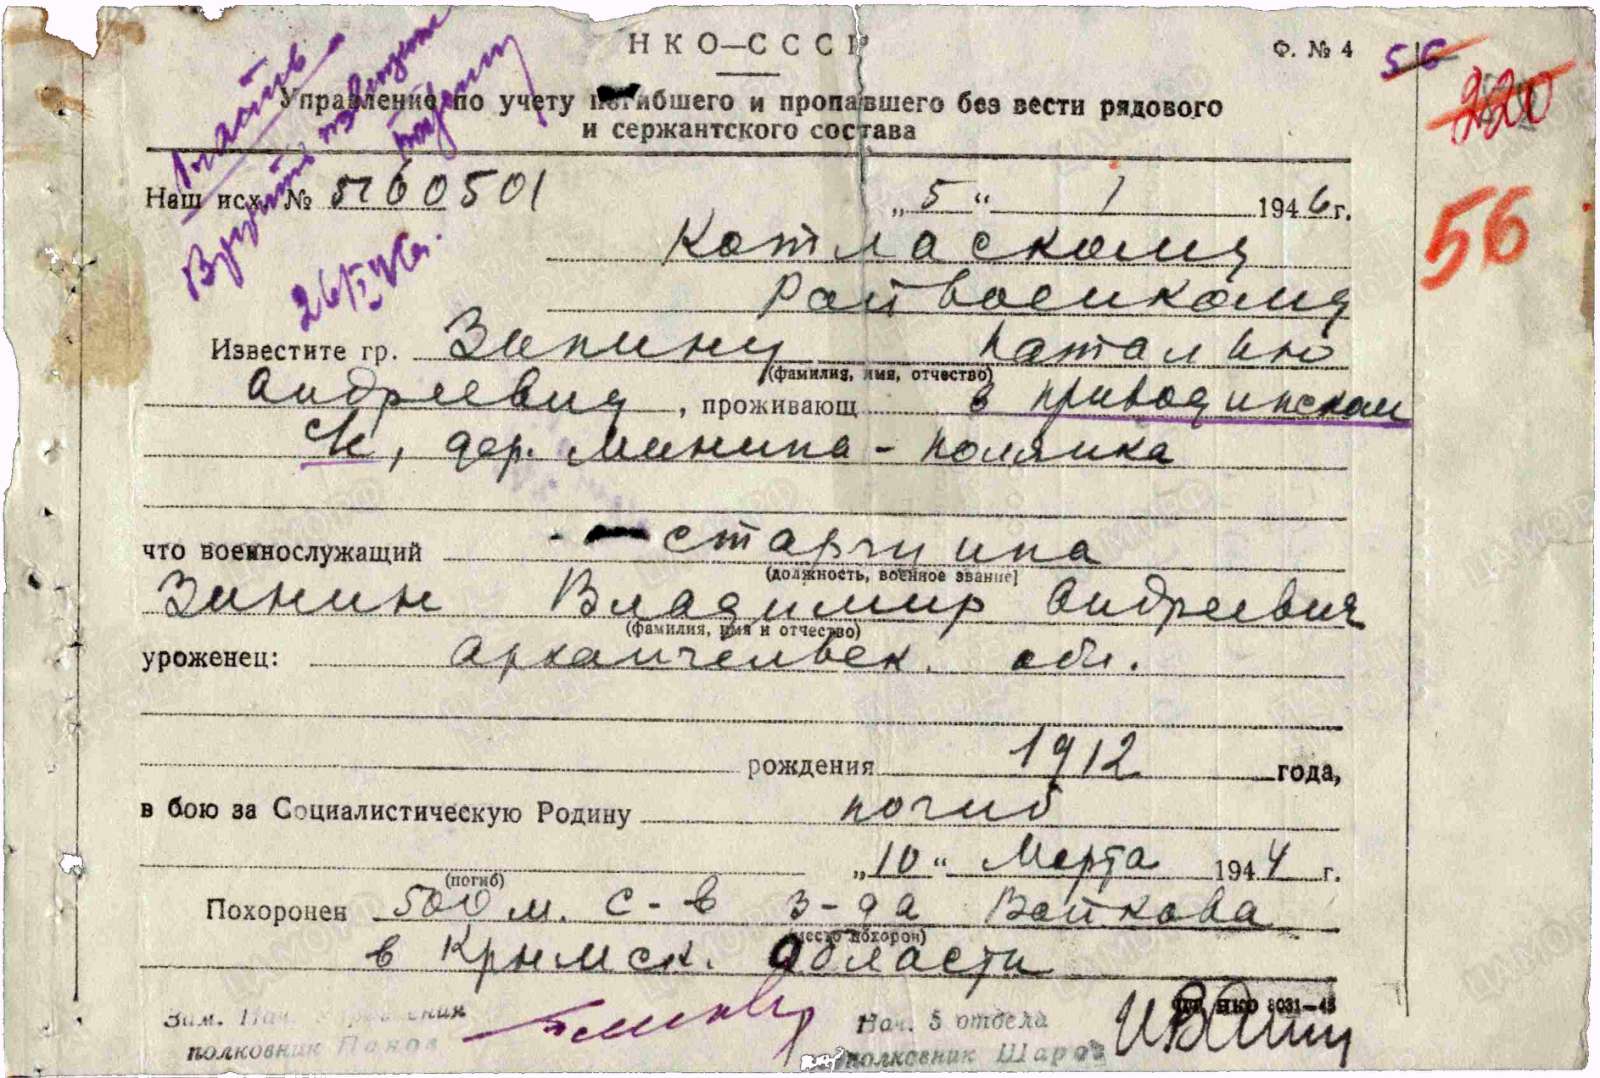 НКО—СССР
Ф. № 4
56
220
Управление по учету погибшего и пропавшего без вести рядового
и сержантского состава
Наш исх. № 5760501
„5“ 1 1946 г.
56
Котласскому
Райвоенкому
26/IV 46г.
Известите гр. Зинину Наталию
(фамилия, имя, отчество)
Андреевну, проживающ в Приводинском
с/с, дер. Минина - полянка
что военнослужащий старшина
(должность, военное звание)
Зинин Владимир Андреевич
(фамилия, имя и отчество)
уроженец: Архангельск. обл.
рождения 1912 года,
в бою за Социалистическую Родину погиб
„10“ Марта 1944 г.
(погиб)
Похоронен 500 м. с-в з-да Войкова
(место похорон)
в Крымск. области
Зам. Нач. Управления
полковник Панов
Нач. 5 отдела
полковник Шаров
НКО 8031—45